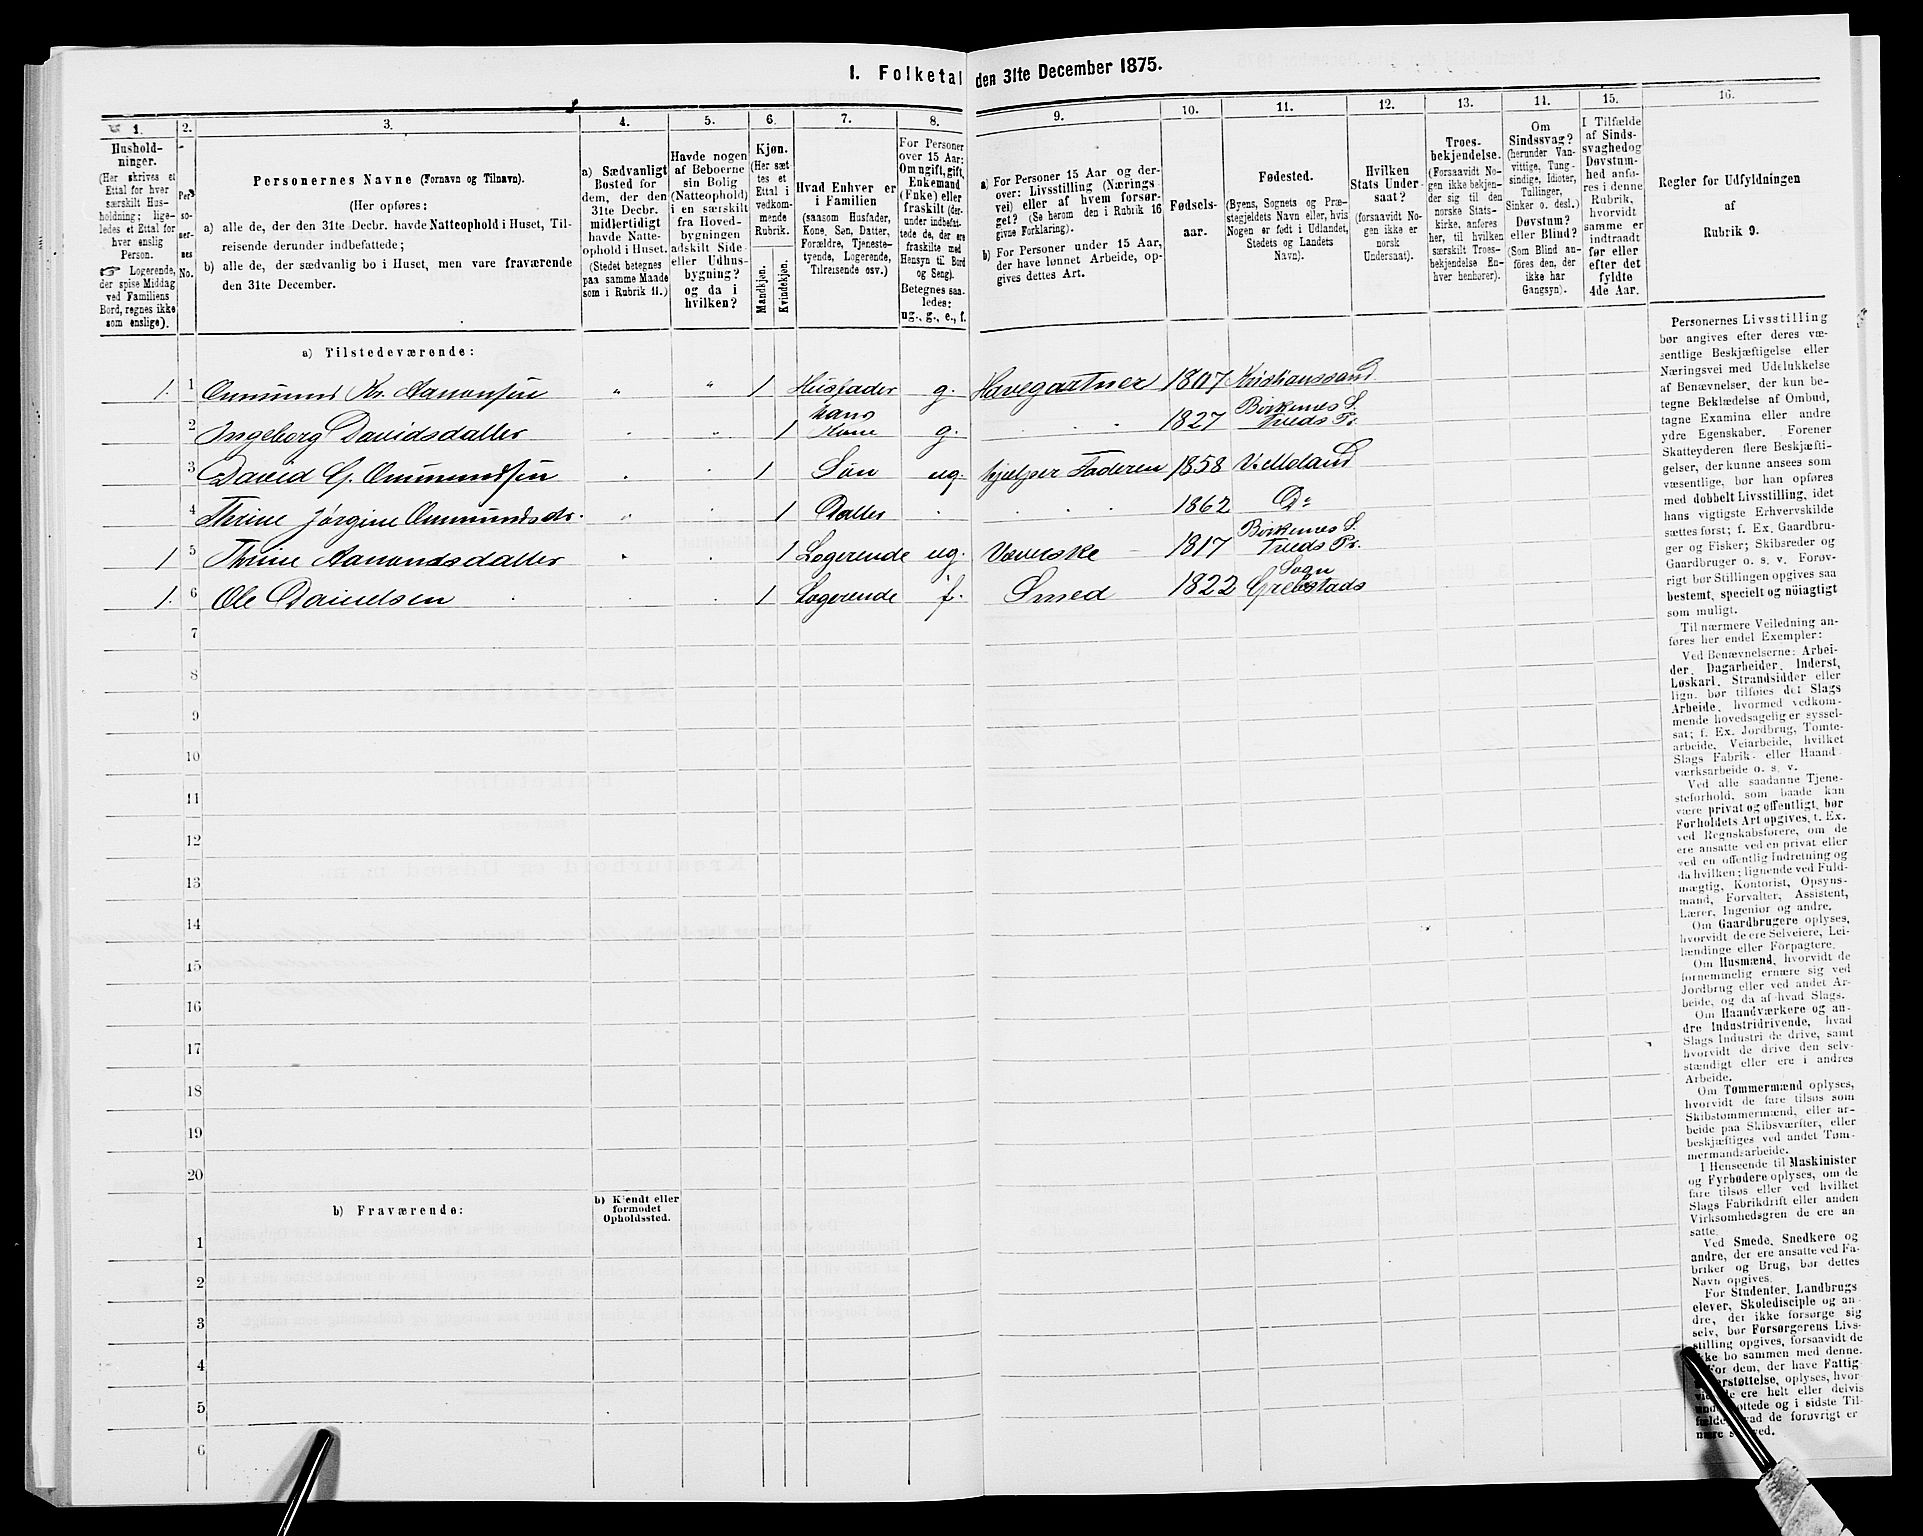 I. Folketal den 31te December 1875.
1. 2. 3. 4. 5. 6. 7. 8. 9. 10. 11. 12. 13. 14. 15. 16.
Hushold-
ninger.
(Her skrives et
Ettal for hver
særskilt Hus-
holdning; lige-
ledes et Ettal for
hver enslig
Person.
☞ Logerende,
der spise Middag
ved Familiens
Bord, regnes ikke
som enslige).
Per-
so-
ner-
nes
No.
Personernes Navne (Fornavn og Tilnavn).
(Her opføres:
a) alle de, der den 31te Decbr. havde Natteophold i Huset, Til-
reisende derunder indbefattede;
b) alle de, der sædvanlig bo i Huset, men vare fraværende
den 31te December.
a) Sædvanligt
Bosted for
dem, der den
31te Decbr.
midlertidigt
havde Natte-
ophold i Huset.
(Stedet betegnes
paa samme Maade
som i Rubrik 11.)
Havde nogen
af Beboerne
sin Bolig
(Natteophold)
i en særskilt
fra Hoved-
bygningen
adskilt Side-
eller Udhus-
bygning?
og da i
hvilken?
Kjøn.
(Her sæt-
tes et
Ettal i
vedkom-
mende
Rubrik.
Mandkjøn.
Kvindekjøn.
Hvad Enhver er
i Familien
(saasom Husfader,
Kone, Søn, Datter,
Forældre, Tjeneste-
tyende, Logerende,
Tilreisende osv.)
For Personer
over 15 Aar:
Om ugift, gift,
Enkemand
(Enke) eller
fraskilt (der-
under indbefat-
tede de, der ere
fraskilte med
Hensyn til Bord
og Seng).
Betegnes saa-
ledes:
ug., g., e., f.
a) For Personer 15 Aar og der-
over: Livsstilling (Nærings-
vei) eller af hvem forsør-
get? (Se herom den i Rubrik 16
givne Forklaring).
b) For Personer under 15 Aar,
der have lønnet Arbeide, op-
gives dettes Art.
Fødsels-
aar.
Fødested.
(Byens, Sognets og Præ-
stegjeldets Navn eller, hvis
Nogen er født i Udlandet,
Stedets og Landets
Navn).
Hvilken
Stats Under-
saat?
(forsaavidt No-
gen ikke er
norsk
Undersaat).
Troes-
bekjendelse.
(Forsaavidt No-
gen ikke bekjen-
der sig til den
norske Stats-
kirke, anføres
her, til hvilken
særskilt Troes-
bekjendelse En-
hver henhører).
Om
Sindssvag?
(herunder Van-
vittige, Tung-
sindige, Idioter,
Tullinger,
Sinker o. desl.)
Døvstum?
eller Blind?
(Som Blind an-
føres den, der
ikke har
Gangsyn).
I Tilfælde
af Sinds-
svaghed og
Døvstum-
hed anfø-
res i denne
Rubrik,
hvorvidt
samme er
indtraadt
før eller
efter det
fyldte
4de Aar.
Regler for Udfyldningen
af
Rubrik 9.
a) Tilstedeværende:
1. 1 Ommund Kr. Aanonsen " " 1 Husfader g. Havegartner 1807 Kristianssand
2 Ingeborg Davidsdatter 1 hans Kone g. 1827 Birkenes S. Tveds Pr.
3 David G. Ommundsen 1 Søn ug. hjælper Faderen 1858 V. Moland
4 Thrine Jørgine Ommundsdr. 1 Datter 1862 Do
1 5 Thrine Aanondsdatter 1 Logerende ug. Væverske 1817 Birkenes S. Tveds Pr.
1. 6 Ole Danielsen 1 Logerende f. Smed 1822 Grebstads Sogn
7
8
9
10
11
12
13
14
15
16
17
18
19
20
b) Fraværende:
b) Kjendt eller
formodet
Opholdssted.
1
2
3
4
5
6
Personernes Livsstilling
bør angives efter deres væ-
sentlige Beskjæftigelse eller
Næringsvei med Udelukkelse
af Benævnelser, der kun be-
tegne Beklædelse af Ombud,
tagne Examina eller andre
ydre Egenskaber. Forener
Skatteyderen flere Beskjæfti-
gelser, der kunne ansees som
væsentlige, bør han opføres
med dobbelt Livsstilling, idet
hans vigtigste Erhvervskilde
sættes først; f. Ex. Gaardbru-
ger og Fisker; Skibsreder og
Gaardbruger o. s. v. Forøv-
rigt bør Stillingen opgives saa
bestemt, specielt og nøiagtigt
som muligt.
Til nærmere Veiledning an-
føres her endel Exempler:
Ved Benævnelserne: Arbei-
der, Dagarbeider, Inderst,
Løskarl, Strandsidder eller
lign. bør tilføies det Slags
Arbeide, hvormed vedkom-
mende hovedsagelig er syssel-
sat; f. Ex. Jordbrug, Tomte-
arbeide, Veiarbeide, hvilket
Slags Fabrik- eller Haand-
værksarbeide o. s. v.
Ved alle saadanne Tjene-
steforhold, som baade kan
være privat og offentligt, bør
Forholdets Art opgives, t. Ex.
ved Regnskabsførere, om de
ere ansatte ved en privat eller
ved en offentlig Indretning og
da hvilken; lignende ved Fuld-
mægtig, Kontorist, Opsyns-
mand, Forvalter, Assistent,
Lærer, Ingeniør og andre.
Om Gaardbrugere oplyses,
hvorvidt de ere Selveiere, Lei-
lændinge eller Forpagtere.
Om Husmænd, hvorvidt de
fornemmelig ernære sig ved
Jordbrug eller ved andet Ar-
beide, og da af hvad Slags.
Om Haandværkere og an-
dre Industridrivende, hvad
Slags Industri de drive, samt
hvorvidt de drive den selv-
stændigt eller ere i andres
Arbeide.
Om Tømmermænd oplyses,
hvorvidt de fare tilsøs som
Skibstømmermænd, eller ar-
beide paa Skibsværfter, eller
beskjæftiges ved andet Tøm-
mermandsarbeide.
I Henseende til Maskinister
og Fyrbødere oplyses, om de
fare tilsøs eller ved hvilket
Slags Fabrikdrift eller anden
Virksomhedsgren de ere an-
satte.
Ved Smede, Snedkere og
andre, der ere ansatte ved Fa-
briker og Brug, bør dettes
Navn opgives.
For Studenter, Landbrugs
elever, Skoledisciple og an-
dre, der ikke forsørge sig
selv, bør Forsørgerens Livs-
stilling opgives, forsaavidt de
ikke bo sammen med denne.
For dem, der have Fattig-
understøttelse, oplyses, hvor-
ere helt eller delvis
og i sidste Til-
de forøvrigt er